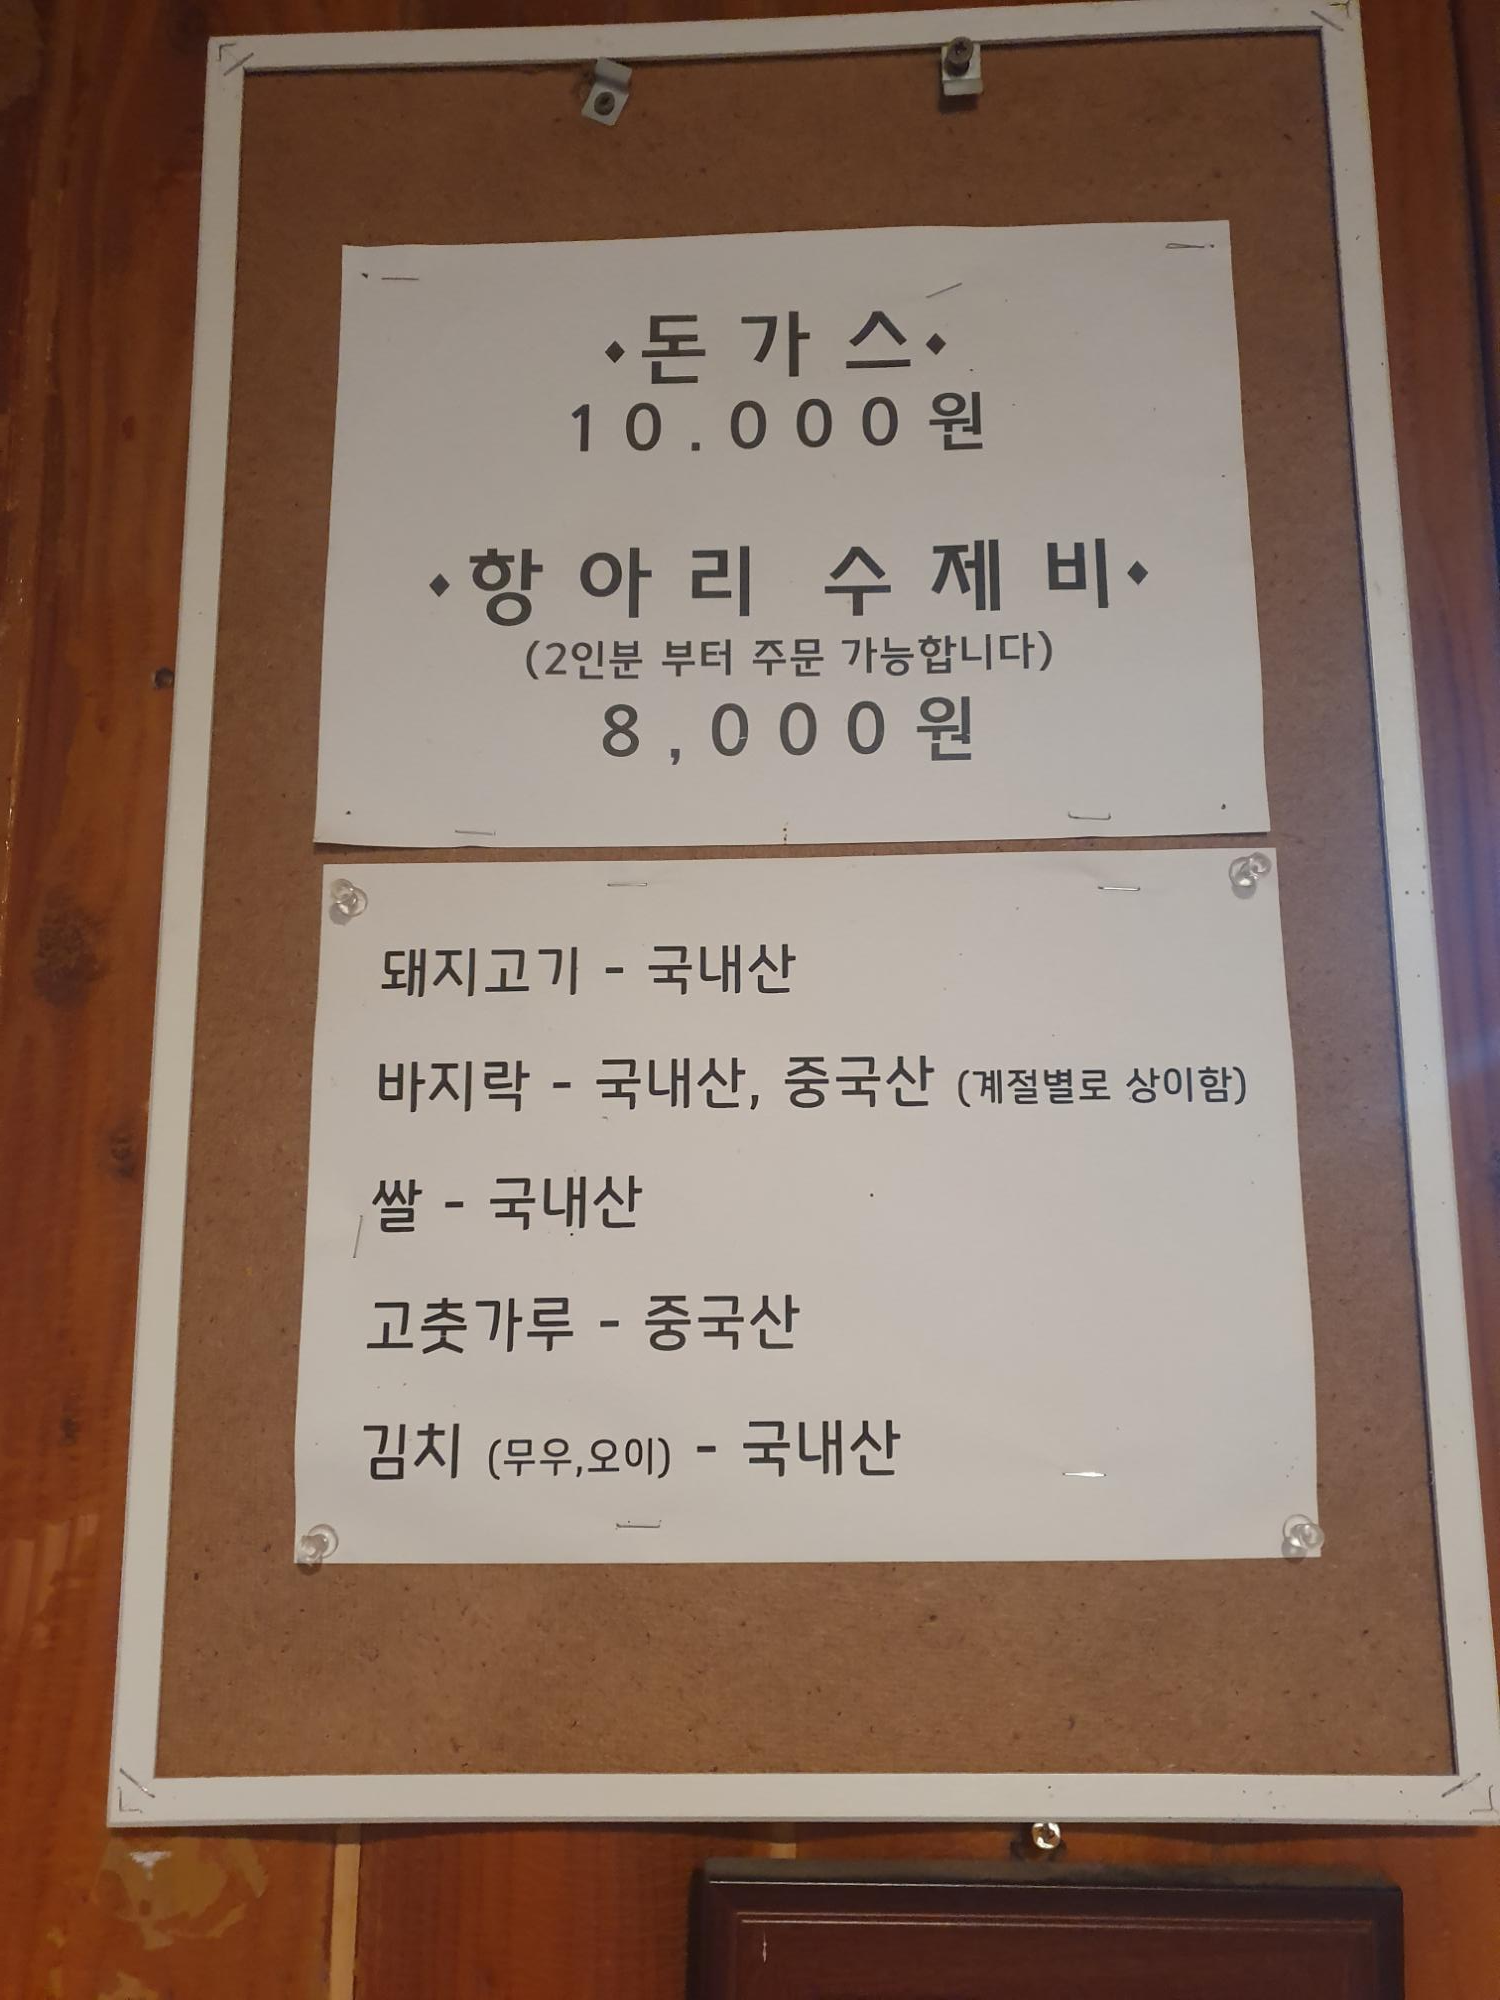 ◆돈 가 스◆
10.000원
◆항 아 리 수 제 비◆
(2인분 부터 주문 가능합니다)
8,000원
돼지고기 - 국내산
바지락 - 국내산, 중국산 (계절별로 상이함)
쌀 - 국내산
고춧가루 - 중국산
김치 (무우,오이) - 국내산